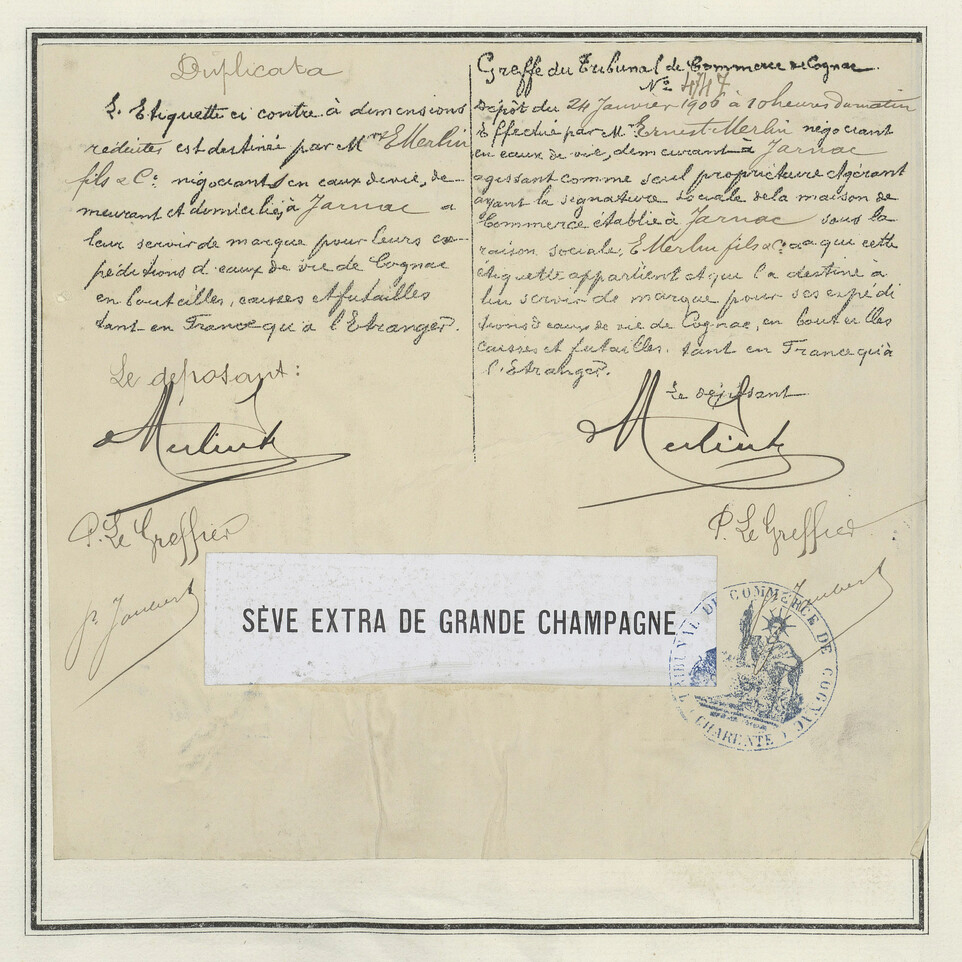 Duplicata
L'Etiquette ci contre à dimensions
réduites est destinée par Mrs E Merlin
fils & Cie négociants en eaux de vie, de-
meurant et domiciliés à Jarnac a
leur servir de marque pour leurs ex-
péditions d'eaux de vie de Cognac
en bouteilles, caisses et futailles
tant en France qu'à l'Etranger.
Le déposant:
P. Le Greffier
Greffe du Tribunal de Commerce de Cognac.
No 4747
Dépôt du 24 Janvier 1906 à 10 heures du matin
Effectué par Mr Ernest Merlin négociant
en eaux de vie, demeurant à Jarnac
agissant comme seul propriétaire et gérant
ayant la signature sociale de la maison de
Commerce établie à Jarnac sous la
raison sociale, E Merlin fils & Cie a qui cette
étiquette appartient et qui l'a destine à
lui servir de marque pour ses expédi
tions d'eaux de vie de Cognac, en bouteilles
caisses et futailles. tant en France qu'à
l'Etranger.
Le déposant
P. Le Greffier
SÈVE EXTRA DE GRANDE CHAMPAGNE
TRIBUNAL DE COMMERCE DE COGNAC
(CHARENTE)